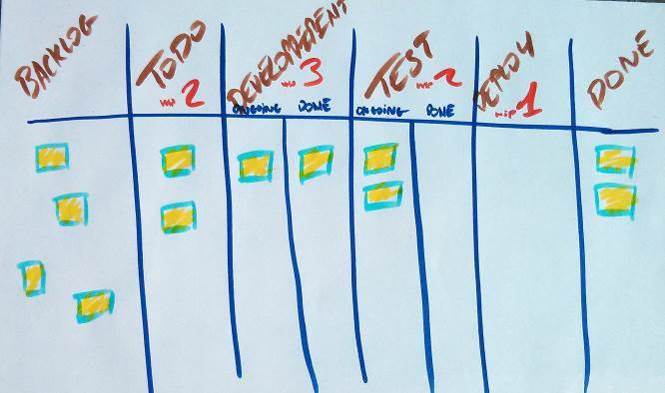 BACKLOG
TODO
WIP 2
DEVELOPMENT
WIP 3
ONGOING DONE
TEST
WIP 2
ONGOING DONE
DEPLOY
WIP 1
DONE